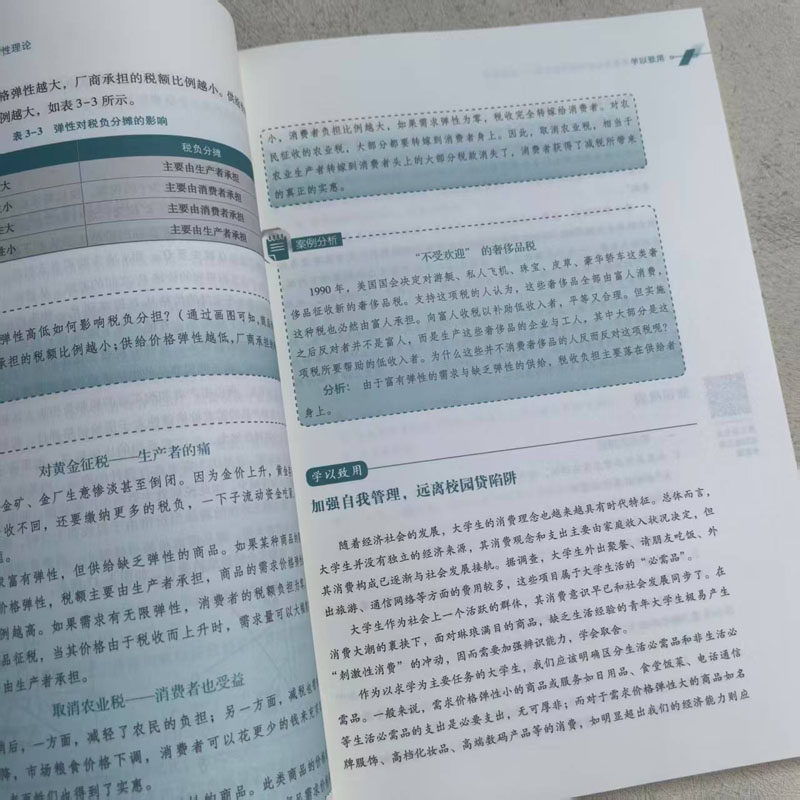 性理论
格弹性越大，厂商承担的税额比例越小。供给
例越大，如表3-3所示。
表3-3 弹性对税负分摊的影响
税负分摊
大
主要由生产者承担
性小
主要由消费者承担
性大
主要由消费者承担
性小
主要由生产者承担
弹性高低如何影响税负分担？（通过画图可知，
承担的税额比例越小；供给价格弹性越低，厂商承担
对黄金征税——生产者的痛
金矿、金厂生意惨淡甚至倒闭。因为金价上升，
收不回，还要缴纳更多的税负，一下子流动资金
题。
求富有弹性，但供给缺乏弹性的商品。如果某种商品
价格弹性，税额主要由生产者承担，商品的需求价格弹性
例越高。如果需求有无限弹性，消费者的税额负担为零
品征税，当其价格由于税收而上升时，需求量可以大幅
由生产者承担。
取消农业税——消费者也受益
消后，一方面，减轻了农民的负担；另一方面，减税也
降，市场粮食价格下调，消费者可以花更少的钱来
也得到了实惠。
性的商品。此类商品的
学以致用
小，消费者负担比例越大，如果需求弹性为零，税收完全转嫁给消费者。对农
民征收的农业税，大部分都要转嫁到消费者身上。因此，取消农业税，相当于
农业生产者转嫁到消费者头上的大部分税款消失了，消费者获得了减税所带来
的真正的实惠。
案例分析
“不受欢迎”的奢侈品税
1990年，美国国会决定对游艇、私人飞机、珠宝、皮草、豪华轿车这类奢
侈品征收新的奢侈品税。支持这项税的人认为，这些奢侈品全部由富人消费，
这种税也必然由富人承担。向富人收税以补助低收入者，平等又合理。但实施
之后反对者并不是富人，而是生产这些奢侈品的企业与工人，其中大部分是这
项税所要帮助的低收入者。为什么这些并不消费奢侈品的人反而反对这项税呢？
分析：由于富有弹性的需求与缺乏弹性的供给，税收负担主要落在供给者
身上。
学以致用
加强自我管理，远离校园贷陷阱
随着经济社会的发展，大学生的消费理念也越来越具有时代特征。总体而言，
大学生并没有独立的经济来源，其消费观念和支出主要由家庭收入状况决定，但
其消费构成已逐渐与社会发展接轨。据调查，大学生外出聚餐、请朋友吃饭、外
出旅游、通信网络等方面的费用较多，这些项目属于大学生活的“必需品”。
大学生作为社会上一个活跃的群体，其消费意识早已和社会发展同步了。在
消费大潮的裹挟下，面对琳琅满目的商品，缺乏生活经验的青年大学生极易产生
“刺激性消费”的冲动，因而需要加强辨识能力，学会取舍。
作为以求学为主要任务的大学生，我们应该明确区分生活必需品和非生活必
需品。一般来说，需求价格弹性小的商品或服务如日用品、食堂饭菜、电话通信
等生活必需品的支出是必要支出，无可厚非；而对于需求价格弹性大的商品如名
牌服饰、高档化妆品、高端数码产品等的消费，如明显超出我们的经济能力则应